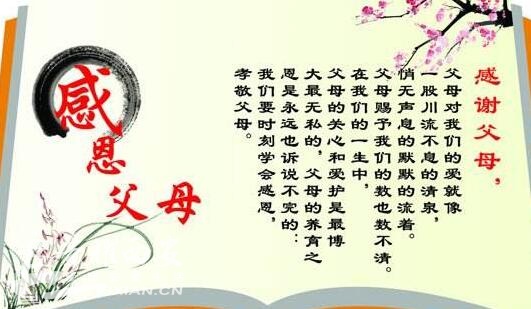 感谢父母，
父母对我们的爱就像
一股川流不息的清泉，
悄无声息的默默的流着。
父母赐予我们的数也数不清。
在我们的一生中，
父母的关心和爱护是最博
大最无私的，父母的养育之
恩是永远也诉说不完的：
我们要时刻学会感恩，
孝敬父母。
感恩父母